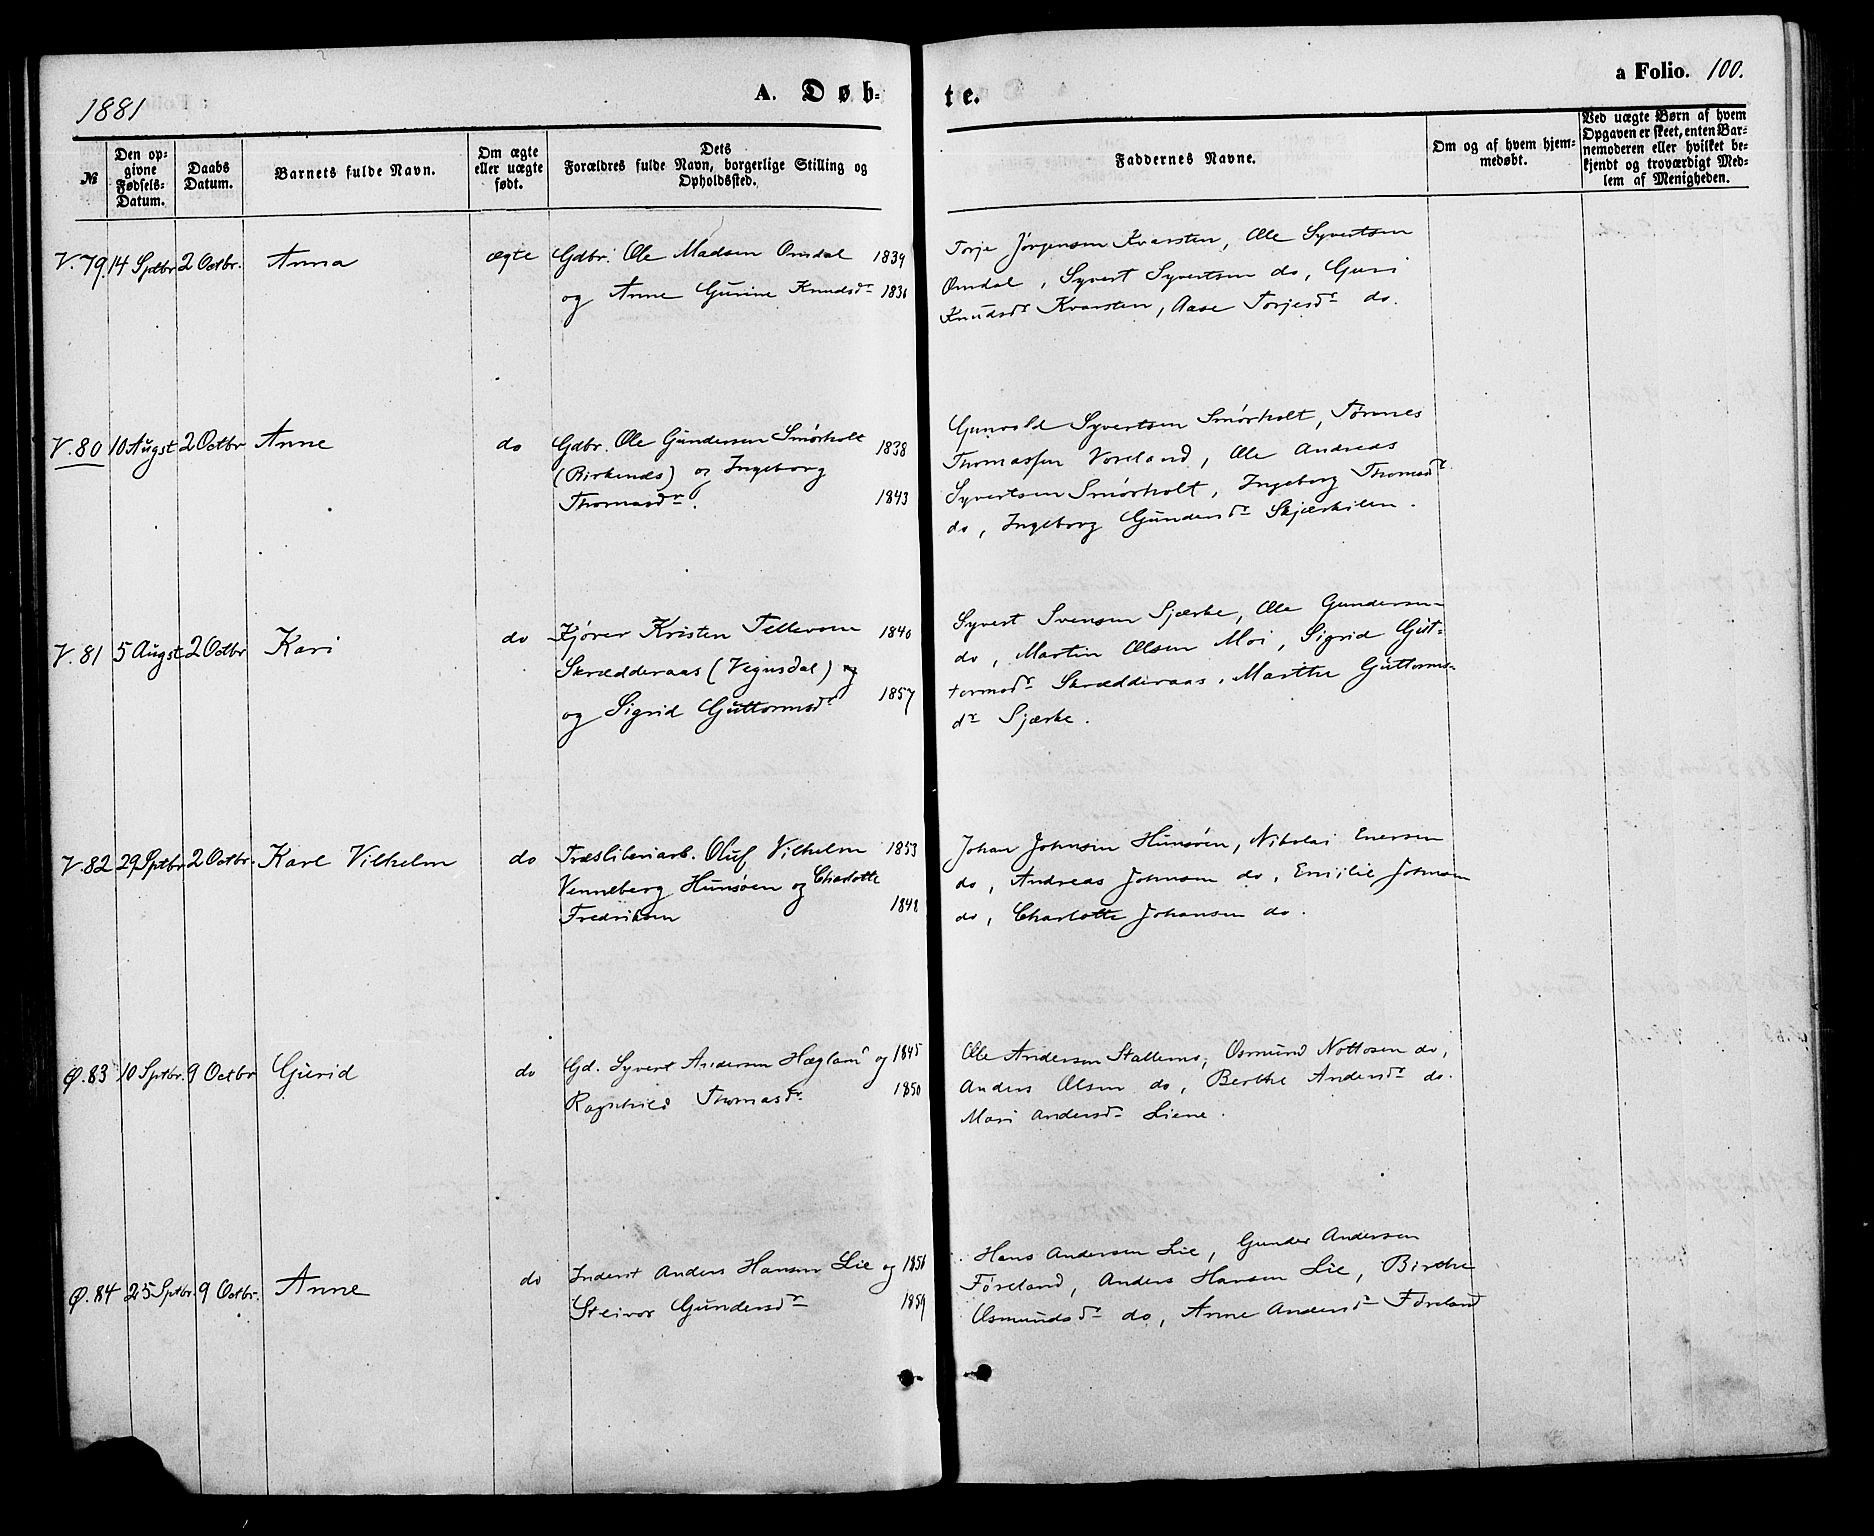 1881
A. Døb-
te.
a Folio. 100.
№
Den opgivne Fødsels-Datum.
Daabs Datum.
Barnets fulde Navn.
Om ægte eller uægte født.
Dets Forældres fulde Navn, borgerlige Stilling og Opholdssted.
Faddernes Navne.
Om og af hvem hjemmedøbt.
Ved uægte Børn af hvem Opgaven er skeet, enten Barnemoderen eller hvilket bekjendt og troværdigt Medlem af Menigheden.
V. 79. 14 Sptbr 2 Octbr. Anna ægte Gdbr. Ole Madsen Omdal 1839
og Anne Gurine Knudsdr 1836
Torje Jörgensen Kvarsten, Ole Syvertsen
Omdal, Syvert Syvertsen do, Guri
Knudsdr Kvarsten, Aase Torjesdr do.
V. 80 10 Augst 2 Octbr Anne do Gdbr. Ole Gundersen Smörholt 1838
(Birkends) og Ingeborg
Thomasdr. 1843
Gunvald Syvertsen Smörholt, Tönnes
Thomassen Voreland, Ole Andreas
Syvertsen Smörholt, Ingeborg Thomasdr
do, Ingeborg Gundersdr Skjærkilen.
V. 81 5 Augst 2 Octbr Kari do Kjörer Kristen Tellevsen 1840
Skrædderaas (Vegusdal) og
og Sigrid Guttormsdr 1857
Syvert Svensen Sjærke, Ole Gundersen
do, Martin Olsen Moi, Sigrid Gut-
tormsdr Skrædderaas, Marthe Guttorms-
dr Sjærke.
V. 82 29 Sptbr 2 Octbr. Karl Vilhelm do Træsliberiarb. Oluf Vilhelm 1853
Venneberg Hunsöen og Charlotte
Fredriksen 1848
Johan Johnsen Hunsöen, Nikolai Enersen
do, Andreas Johnsen do, Emilie Johnsen
do, Charlotte Johansen do.
Ø. 83 10 Sptbr. 9 Octbr Gurid do Gd. Syvert Andersen Hægland og 1845
Ragnhild Thomasdr 1850
Ole Andersen Stallemo, Osmund Nottosen do,
Anders Olsen do, Berthe Andersdr do.
Mari Andersdr Liene.
Ø. 84 25 Sptbr. 9 Octbr. Anne do Inderst Anders Hansen Lie og 1856
Steivor Gundersdr 1859
Hans Andersen Lie, Gunder Andersen
Föreland, Anders Hansen Lie, Birthe
Osmundsdr do, Anne Andersdr Föreland